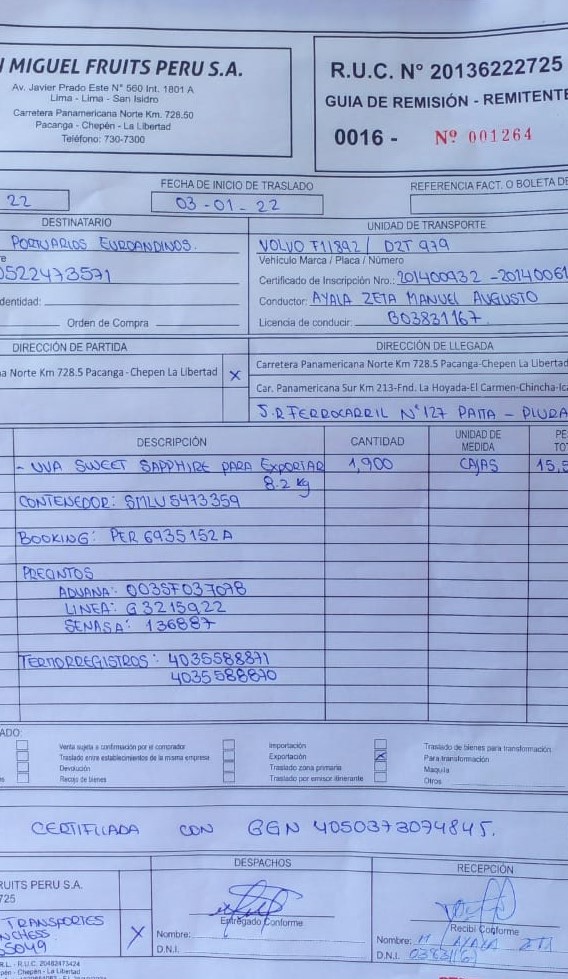 MIGUEL FRUITS PERU S.A.
Av. Javier Prado Este N° 560 Int. 1801 A
Lima - Lima - San Isidro
Carretera Panamericana Norte Km. 728.50
Pacanga - Chepén - La Libertad
Teléfono: 730-7300
R.U.C. N° 20136222725
GUIA DE REMISIÓN - REMITENTE
0016 - Nº 001264
FECHA DE INICIO DE TRASLADO
REFERENCIA FACT. O BOLETA DE
22
03-01-22
DESTINATARIO
UNIDAD DE TRANSPORTE
PORTUARIOS EUROANDINOS.
VOLVO F11892/ DZT 979
Vehículo Marca / Placa / Número
0522473571
Certificado de Inscripción Nro.: 201400932 - 2014006
Conductor: AYALA ZETA MANUEL AUGUSTO
dentidad:
Orden de Compra
Licencia de conducir: B03831167.
DIRECCIÓN DE PARTIDA
DIRECCIÓN DE LLEGADA
a Norte Km 728.5 Pacanga - Chepen La Libertad
X
Carretera Panamericana Norte Km 728.5 Pacanga-Chepen La Libertad
Car. Panamericana Sur Km 213-Fnd. La Hoyada-El Carmen-Chincha-Ica
J.R FERROCARRIL N°127 PAITA - PIURA
DESCRIPCIÓN
CANTIDAD
UNIDAD DE MEDIDA
PE
TOT
- UVA SWEET SAPPHIRE PARA EXPORTAR
1,900
CAJAS
15,5
8.2 kg
CONTENEDOR: SMLU5473359
BOOKING: PER 6935152A
PRECINTOS
ADUANA: 0035F037078
LINEA: G3215922
SENASA: 136887
TERMORREGISTROS: 4035588871
4035588870
ADO:
Venta sujeta a confirmación por el comprador
Traslado entre establecimientos de la misma empresa
Devolución
Recojo de bienes
Importación
Exportación
Traslado zona primaria
Traslado por emisor itinerante
X
Traslado de bienes para transformación
Para transformación
Maquila
Otros
CERTIFICADA CON GGN 4050373094845.
DESPACHOS
RECEPCIÓN
RUITS PERU S.A.
725
TRANSPORTES
X
Entregado Conforme
Nombre:
D.N.I.
Recibí Conforme
Nombre: M AYALA ZETA
D.N.I.
R.L. - R.U.C. 20482473424